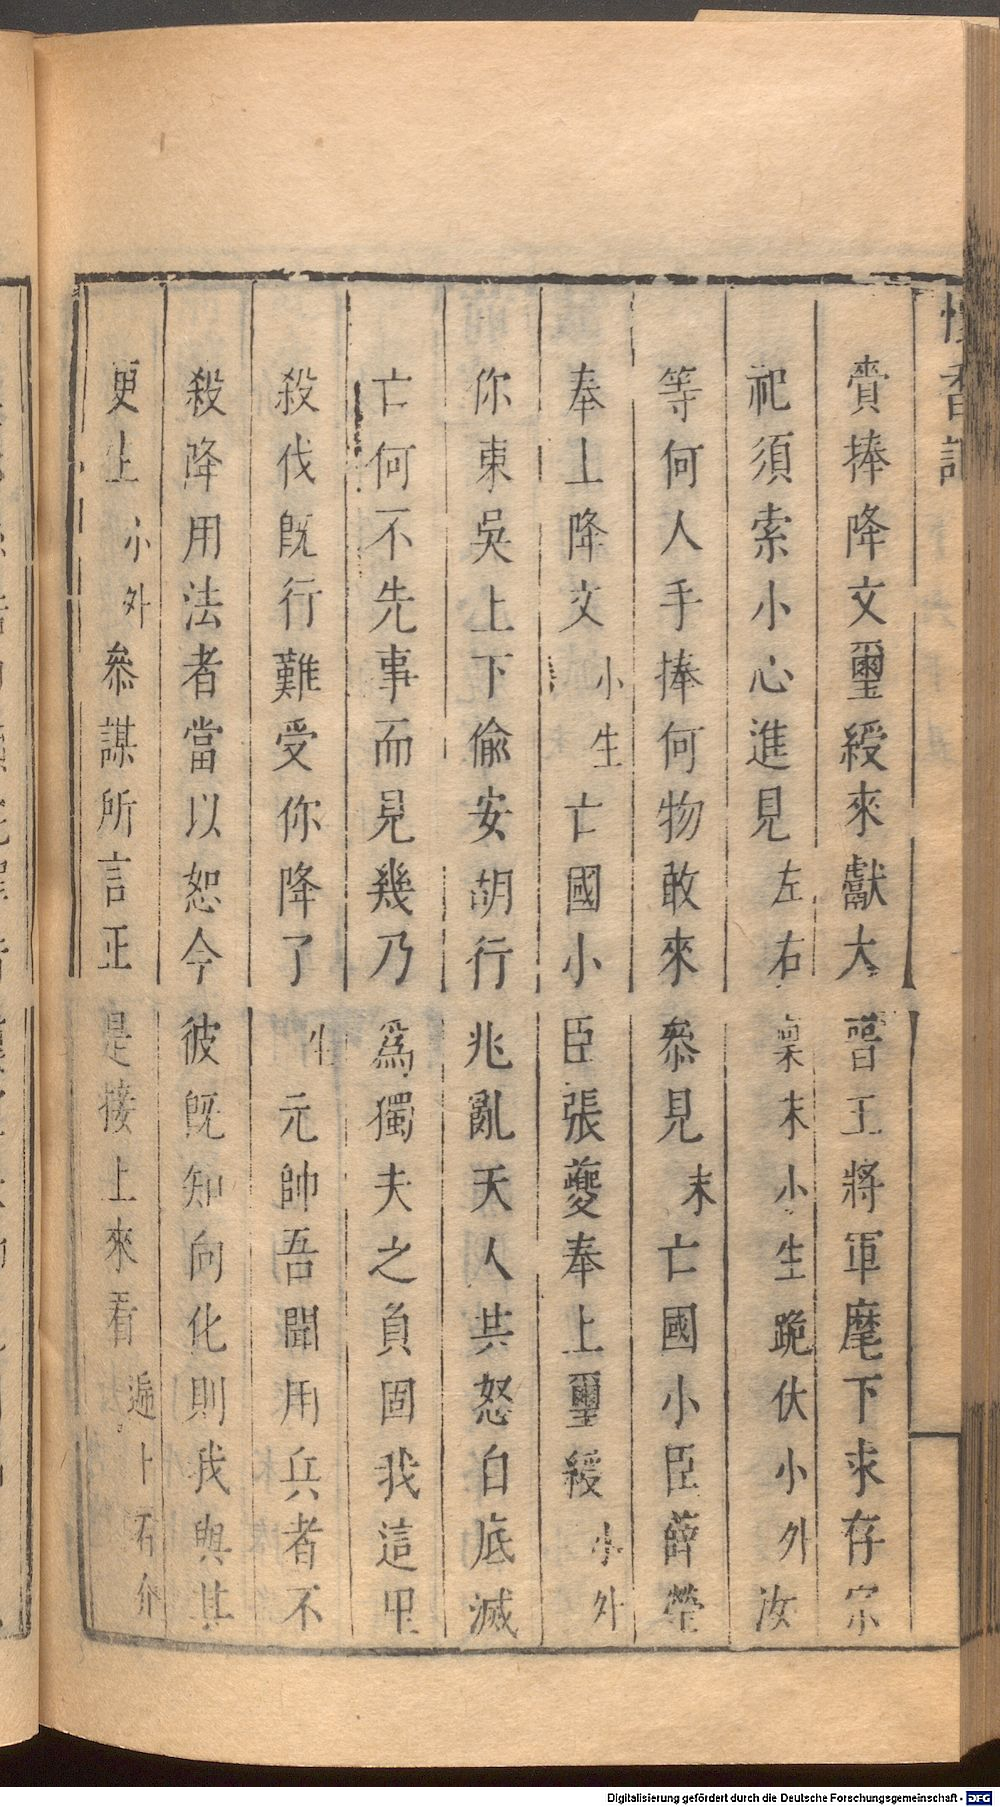 懷香記
賫捧降文璽綬來獻大晉王將軍麾下求存宗
祀須索小心進見左右稟末小生跪伏小外汝
等何人手捧何物敢來叅見末亡國小臣薛瑩
奉上降文小生亡國小臣張夔奉上璽綬小外
你東吳上下偷安胡行兆亂天人共怒自底滅
亡何不先事而見幾乃為獨夫之負固我這里
殺伐既行難受你降了生元帥吾聞用兵者不
殺降用法者當以恕今彼既知向化則我與其
更生小外叅謀所言正是接上來看遞上介
Digitalisierung gefördert durch die Deutsche Forschungsgemeinschaft - DFG